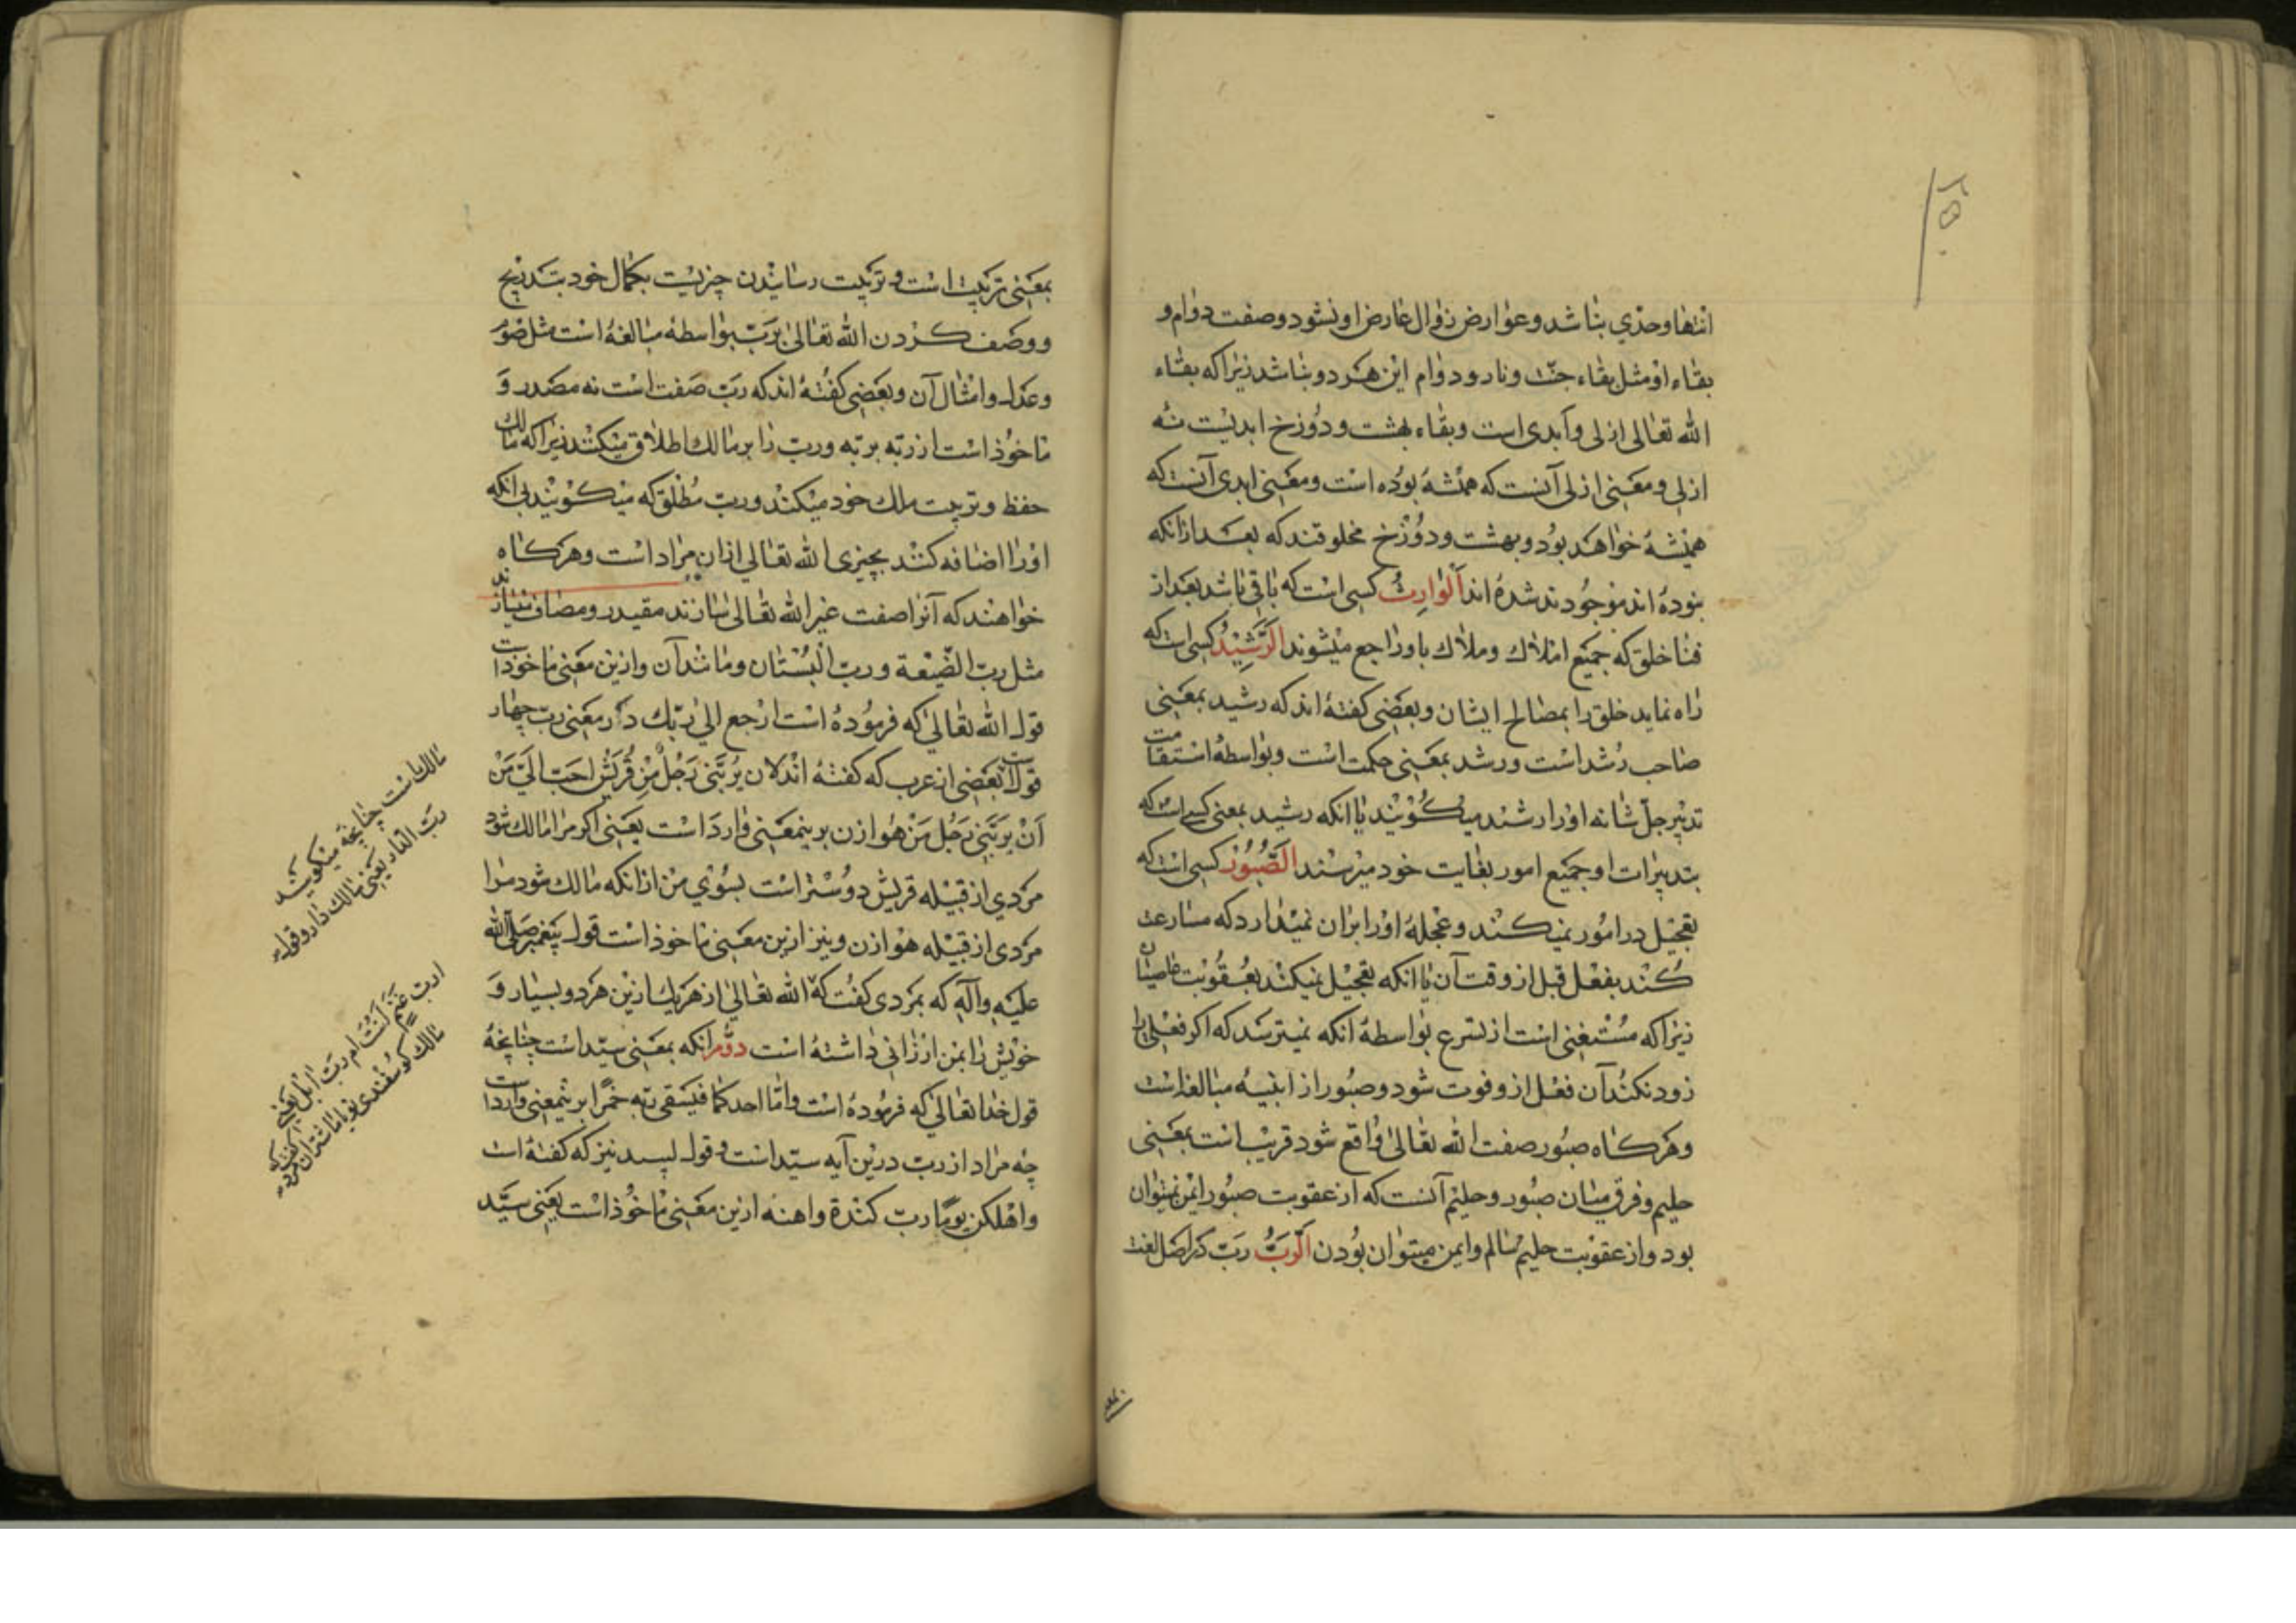 انتها وحدی نباشد وعوارض زوال عارض او نشود وصفت دوام و
بقاء او مثل بقاء جنّت ونار ودوام این هر دو نباشد زیرا که بقاء
الله تعالی ازلی وابدی است وبقاء بهشت ودوزخ ابدیست نه
ازلی ومعنی ازلی آنست که همیشه بوده است ومعنی ابدی آنست که
همیشه خواهد بود وبهشت ودوزخ مخلوقند که بعد از آنکه
نبوده اند موجود ند شده اند اَلْوارِثُ کسی است که باقی باشد بعد از
فنا خلق که جمیع املاک وملاک باو راجع میشوند الرَّشِیْدُ کسی است که
راه نماید خلق را بمصالح ایشان وبعضی کفته اند که رشید بمعنی
صاحب رشد است ورشد بمعنی حکمت است وبواسطه استقامت
تدبیر جلّ شانه او را رشید میکویند یا انکه رشید بمعنی کسی است که
تدبیرات او جمیع امور بغایت خود میرسند الصَّبُورُ کسی است که
تعجیل در امور نمیکند وعجله او را بران نمیدارد که مسارعت
کند بفعل قبل از وقت آن یا انکه تعجیل نمیکند بعقوبت عاصیان
زیرا که مستغنی است از تسرع بواسطه انکه نمیترسد که اکر فعلی را
زود نکند آن فعل ازو فوت شود وصبور از ابنیه مبالغه است
وهرکاه صبور صفت الله تعالی واقع شود قریب است بمعنی
حلیم وفرق میان صبور وحلیم آنست که از عقوبت صبور ایمن نمیتوان
بود واز عقوبت حلیم سالم وایمن میتوان بودن الرَّبُّ ربّ در اصل لغت
بمعنی تربیت است وتربیت رسانیدن چیزیست بکمال خود بتدریج
ووصف کردن الله تعالی بربّ بواسطه مبالغه است مثل صوم
وعدل وامثال آن وبعضی کفته اند که ربّ صفت است نه مصدر و
ماخوذ است از ربّه یربّه وربّ را بر مالک اطلاق میکنند زیرا که مالک
حفظ وتربیت ملک خود میکند وربّ مطلق که میکویند بی انکه
او را اضافه کنند بچیزی الله تعالی ازان مراد است وهرکاه
خواهند که آنرا صفت غیر الله تعالی سازند مقید ومضاف میسازند
مثل ربّ الضّیعة وربّ البستان ومانند آن وازین معنی ماخوذ است
قول الله تعالی که فرموده است ارجع الی ربّک در معنی ربّ چهار
قولست بعضی از عرب که کفته اند لان یربّنی رجل من قریش احبّ الیّ من
اَنْ یربّنی رجل من هوازن برینمعنی وارد است یعنی اکر مرا مالک شود
مردی از قبیله قریش دوستر است بسوی من از انکه مالک شود مرا
مردی از قبیله هوازن ونیز ازین معنی ماخوذ است قول پیغمبر صلی الله
علیه وآله که بمردی کفت که الله تعالی از هر یک ازین هر دو بسیار و
خویش را بمن ارزانی داشته است دوّم انکه بمعنی سیّد است چنانچه
قول خدا تعالی که فرموده است وامّا احدکما فیسقی ربّه خمرا برینمعنی وارد است
چه مراد از ربّ درین آیه سیّد است وقول لبید نیز که کفته است
واهلکن یوما ربّ کندة وابنه ازین معنی ماخوذ است یعنی سیّد
چنانچه میکویند
ربّ الدّار یعنی مالک دار وقوله
اربّ غنم انت ام ربّ ابل یعنی
مالک کوسفندی تو یا مالک شتران